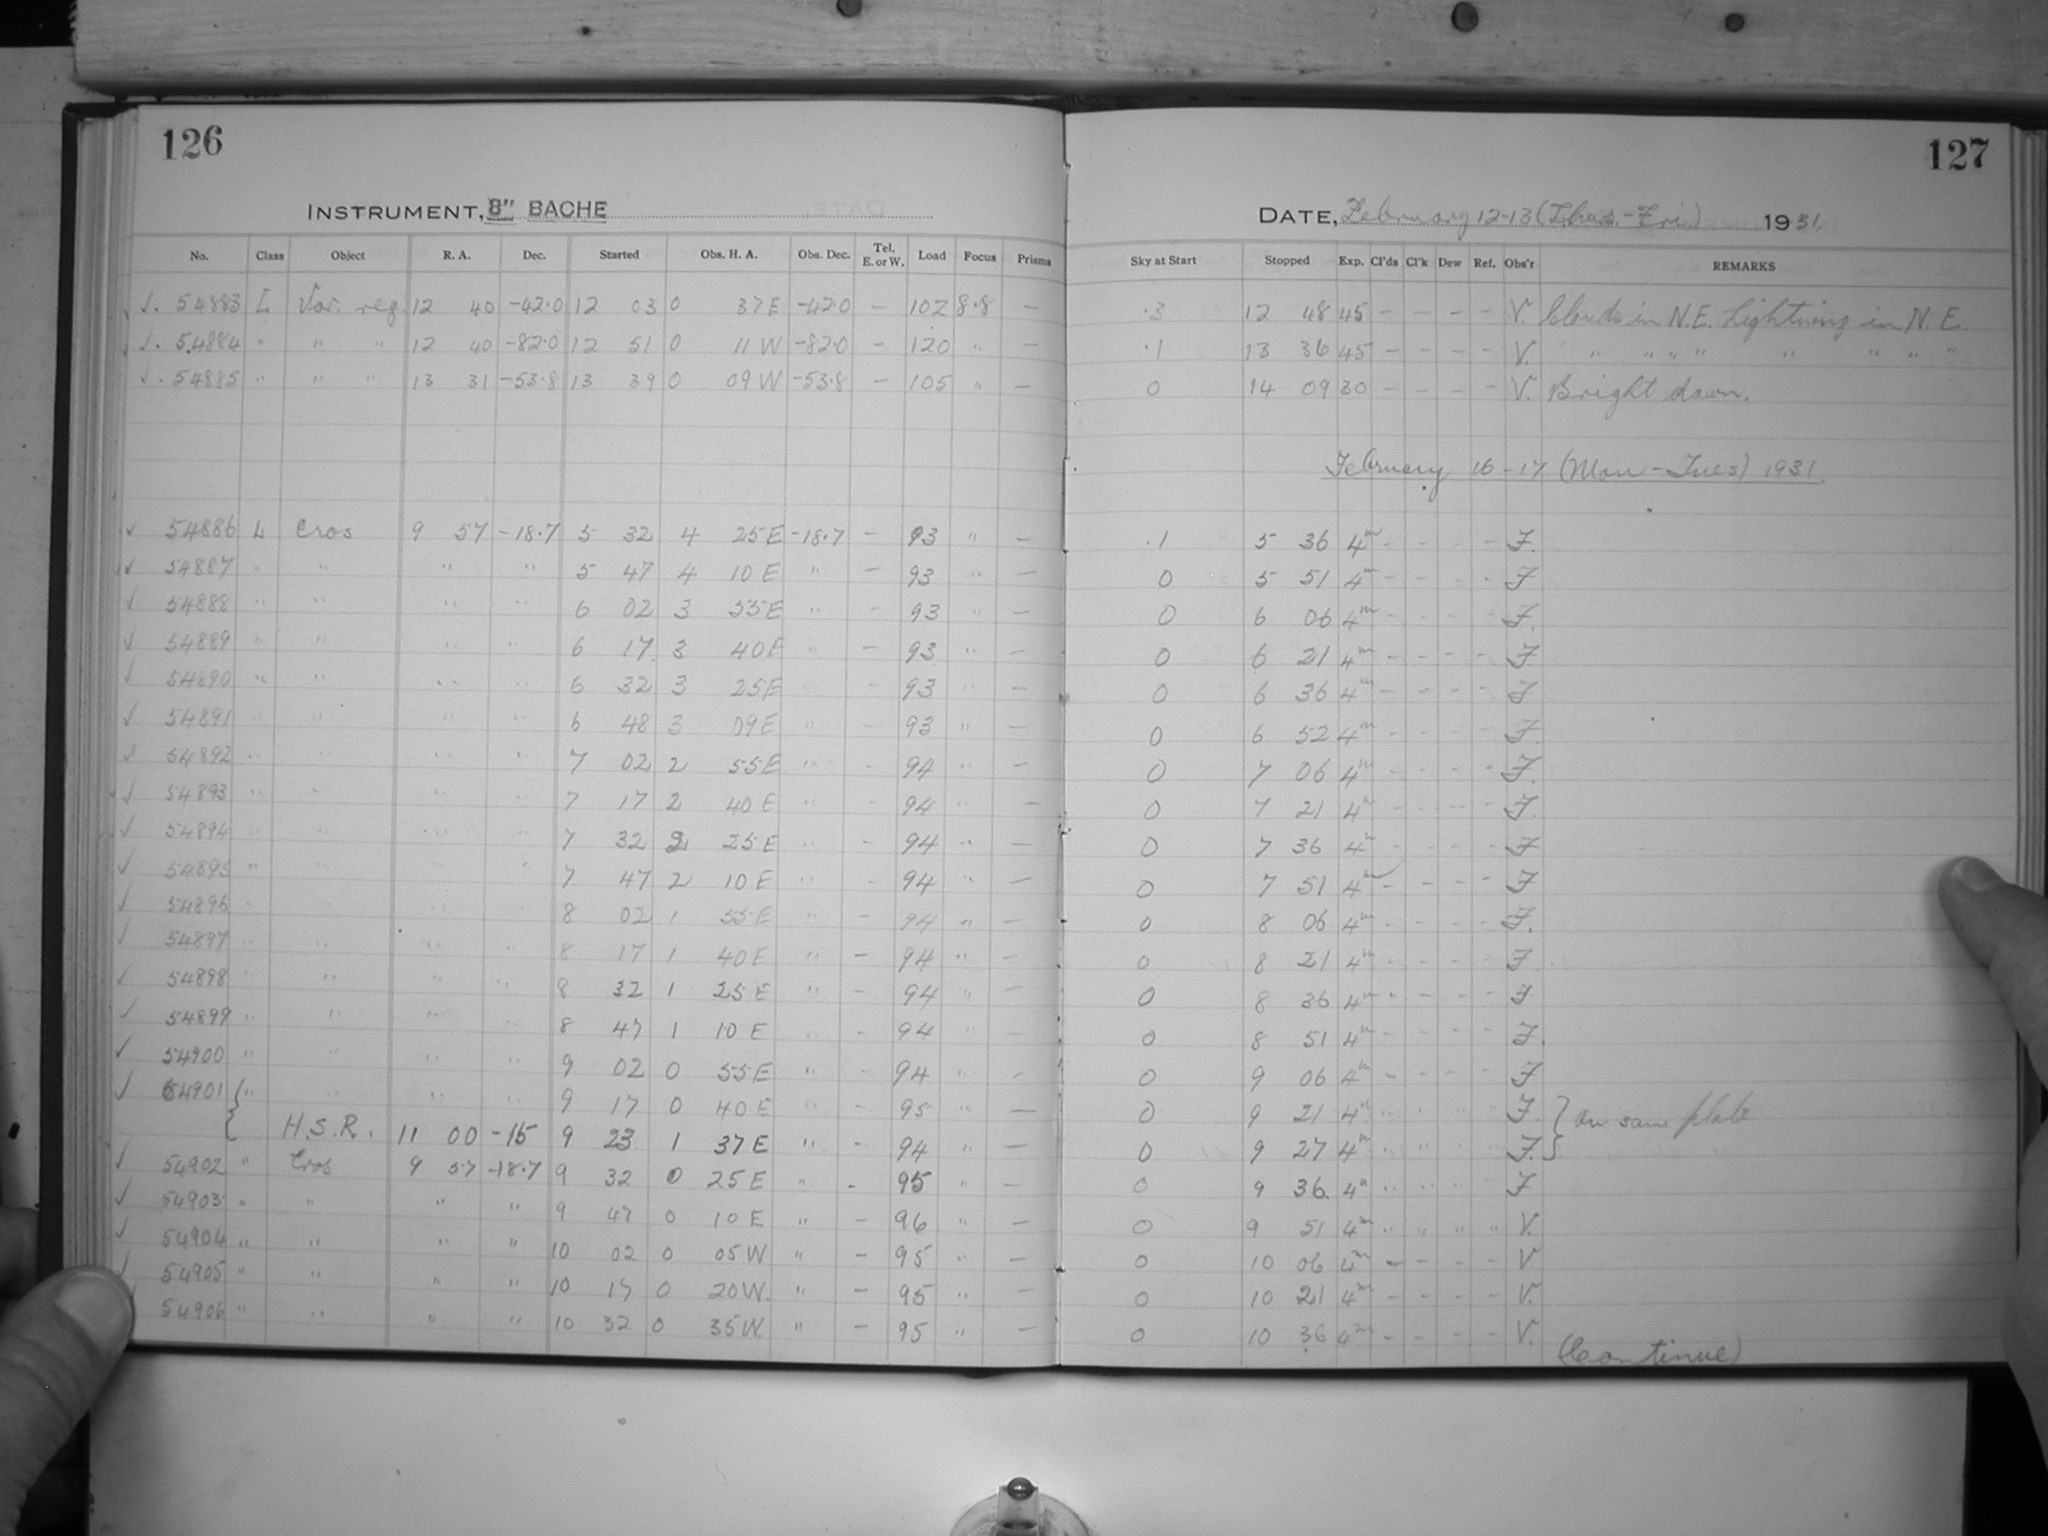 126
INSTRUMENT, 8" BACHE
No. Class Object R. A. Dec. Started Obs. H. A. Obs. Dec. Tel. E. or W. Load Focus Prisms
√. 54883 L Var. reg. 12 40 -42.0 12 03 0 37 E -42.0 — 102 8.8 —
√. 54884 " " " 12 40 -82.0 12 51 0 11 W -82.0 — 120 " —
√. 54885 " " " 13 31 -53.8 13 39 0 09 W -53.8 — 105 " —
√ 54886 L Eros 9 57 -18.7 5 32 4 25 E -18.7 — 93 " —
√ 54887 " " " " 5 47 4 10 E " — 93 " —
√ 54888 " " " " 6 02 3 55 E " - 93 " —
√ 54889 " " " " 6 17 3 40 E " — 93 " —
√ 54890 " " " " 6 32 3 25 E " - 93 " —
√ 54891 " " " " 6 48 3 09 E " - 93 " —
√ 54892 " " " " 7 02 2 55 E " - 94 " —
√ 54893 " " " " 7 17 2 40 E " - 94 " —
√ 54894 " " " " 7 32 2 25 E " - 94 " —
√ 54895 " " " " 7 47 2 10 E " - 94 " —
√ 54896 " " " " 8 02 1 55 E " — 94 " —
√ 54897 " " " " 8 17 1 40 E " — 94 " —
√ 54898 " " " " 8 32 1 25 E " — 94 " —
√ 54899 " " " " 8 47 1 10 E " - 94 " —
√ 54900 " " " " 9 02 0 55 E " - 94 " —
√ 54901 { " " " " 9 17 0 40 E " - 95 " —
H.S.R. 11 00 -15 9 23 1 37 E " — 94 " —
√ 54902 " Eros 9 57 -18.7 9 32 0 25 E " - 95 " —
√ 54903 " " " " 9 47 0 10 E " — 96 " —
√ 54904 " " " " 10 02 0 05 W " — 95 " —
√ 54905 " " " " 10 17 0 20 W. " — 95 " —
54906 " " " " 10 32 0 35 W. " — 95 " —
127
DATE, February 12-13 (Thurs.-Fri.) 1931.
Sky at Start Stopped Exp. Cl'ds Cl'k Dew Ref. Obs'r REMARKS
.3 12 48 45 — — — — V. Clouds in N.E. Lightning in N.E.
.1 13 36 45 — — — — V. " " " " " " " "
0 14 09 30 — — — — V. Bright dawn.
February 16-17 (Mon-Tues) 1931
.1 5 36 4m - - - - F.
0 5 51 4m - - - - F
0 6 06 4m - - - - F.
0 6 21 4m - - - - F
0 6 36 4m - - - - F
0 6 52 4m - - - - F
0 7 06 4m - - - - F.
0 7 21 4m - - - - F.
0 7 36 4m - - - - F
0 7 51 4m - - - - F
0 8 06 4m - - - - F.
0 8 21 4m - - - - F
0 8 36 4m - - - - F
0 8 51 4m - - - - F.
0 9 06 4m - - - - F
0 9 21 4m " " " " F. } on same plate
0 9 27 4m " " " " F.
0 9 36. 4m " " " " F
0 9 51 4m " " " " V.
0 10 06 4m - - - - V
0 10 21 4m - - - - V.
0 10 36 4m - - - - V.
(Continue)